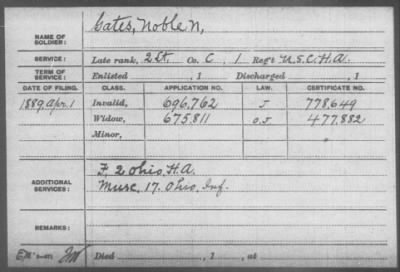 NAME OF SOLDIER: Cates, Noble N,
SERVICE: Late rank, 2 Lt, Co. C, 1 Reg't U.S.C.H.A.
TERM OF SERVICE: Enlisted , 1 Discharged , 1
DATE OF FILING. CLASS. APPLICATION NO. LAW. CERTIFICATE NO.
1889 Apr. 1 Invalid, 696,762 J 778,649
Widow, 675,811 O.J 477,882
Minor,
ADDITIONAL SERVICES: F, 2 Ohio, H.A.
Musc, 17. Ohio, Inf.
REMARKS:
Died , 1 , at